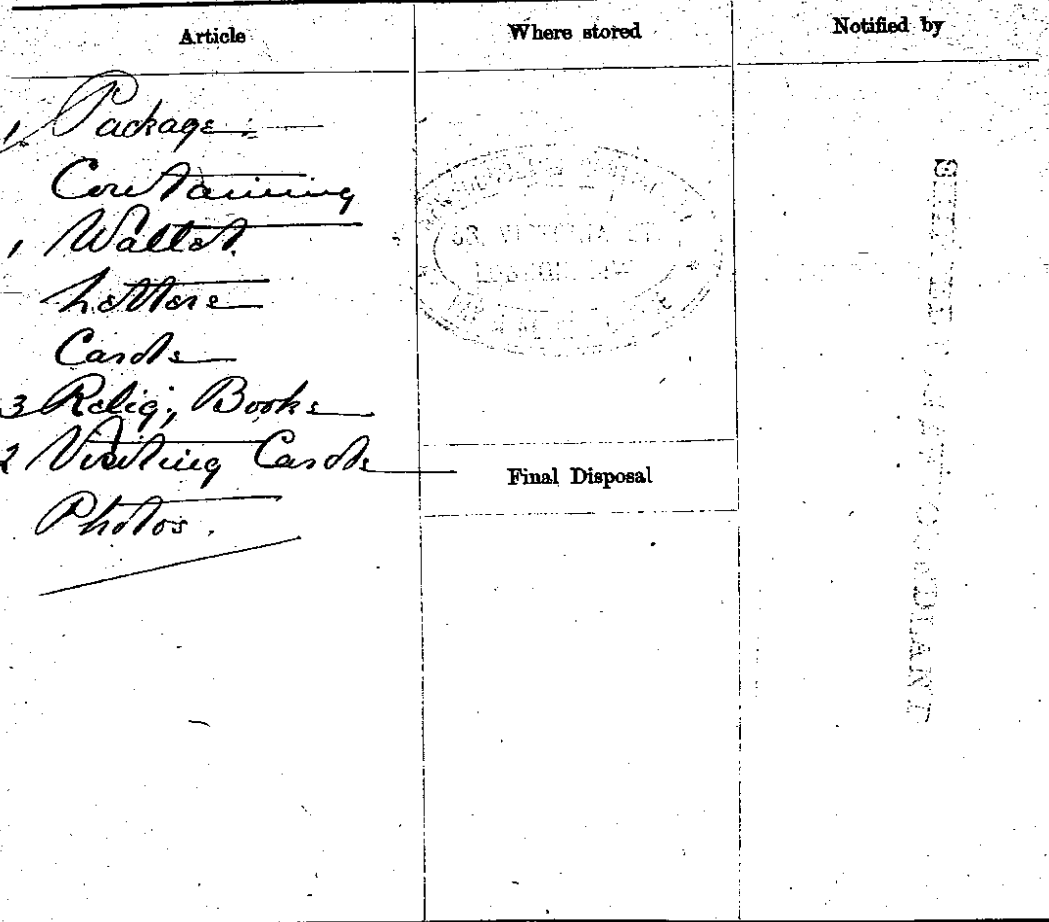 Article
Where stored
Notified by
1, Package:
Containing
1, Wallet.
Letters
Cards
3 Relig, Books
2 Visiting Cards
Photos.
Final Disposal